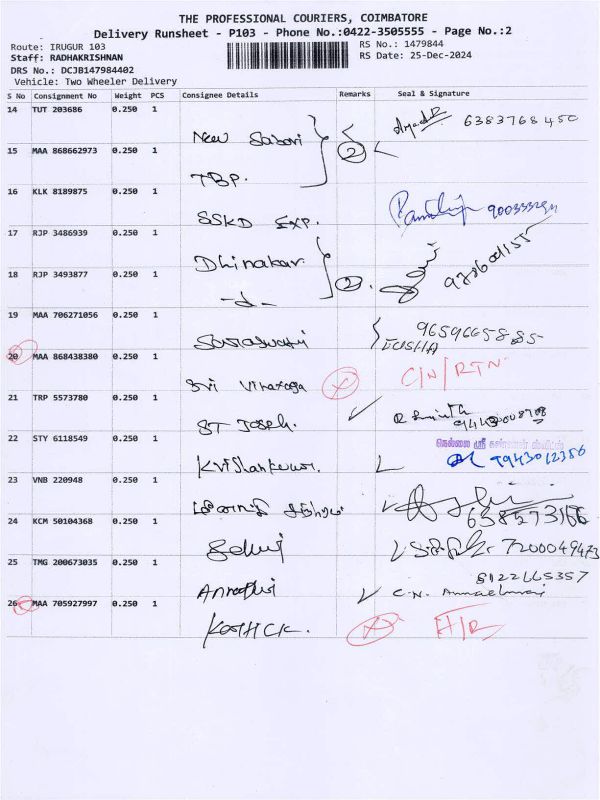 THE PROFESSIONAL COURIERS, COIMBATORE
Delivery Runsheet - P103 - Phone No.:0422-3505555 - Page No.:2
Route: IRUGUR 103
RS No.: 1479844
Staff: RADHAKRISHNAN
RS Date: 25-Dec-2024
DRS No.: DCJB147984402
Vehicle: Two Wheeler Delivery
S No Consignment No Weight PCS Consignee Details Remarks Seal & Signature
14 TUT 203686 0.250 1
6383768450
New
2
15 MAA 868662973 0.250 1
TBP.
16 KLK 8189875 0.250 1
SSKD EXP.
17 RJP 3486939 0.250 1
Dhinakar
2
18 RJP 3493877 0.250 1
-d-
19 MAA 706271056 0.250 1
9659665885
Saraswathi
20 MAA 868438380 0.250 1
Sri Vinayaga
C/N/RTN
21 TRP 5573780 0.250 1
ST JOSEPH.
22 STY 6118549 0.250 1
Krishankumar.
9943012386
23 VNB 220948 0.250 1
24 KCM 50104368 0.250 1
Selvi
7200049473
25 TMG 200673035 0.250 1
8122665357
26 MAA 705927997 0.250 1